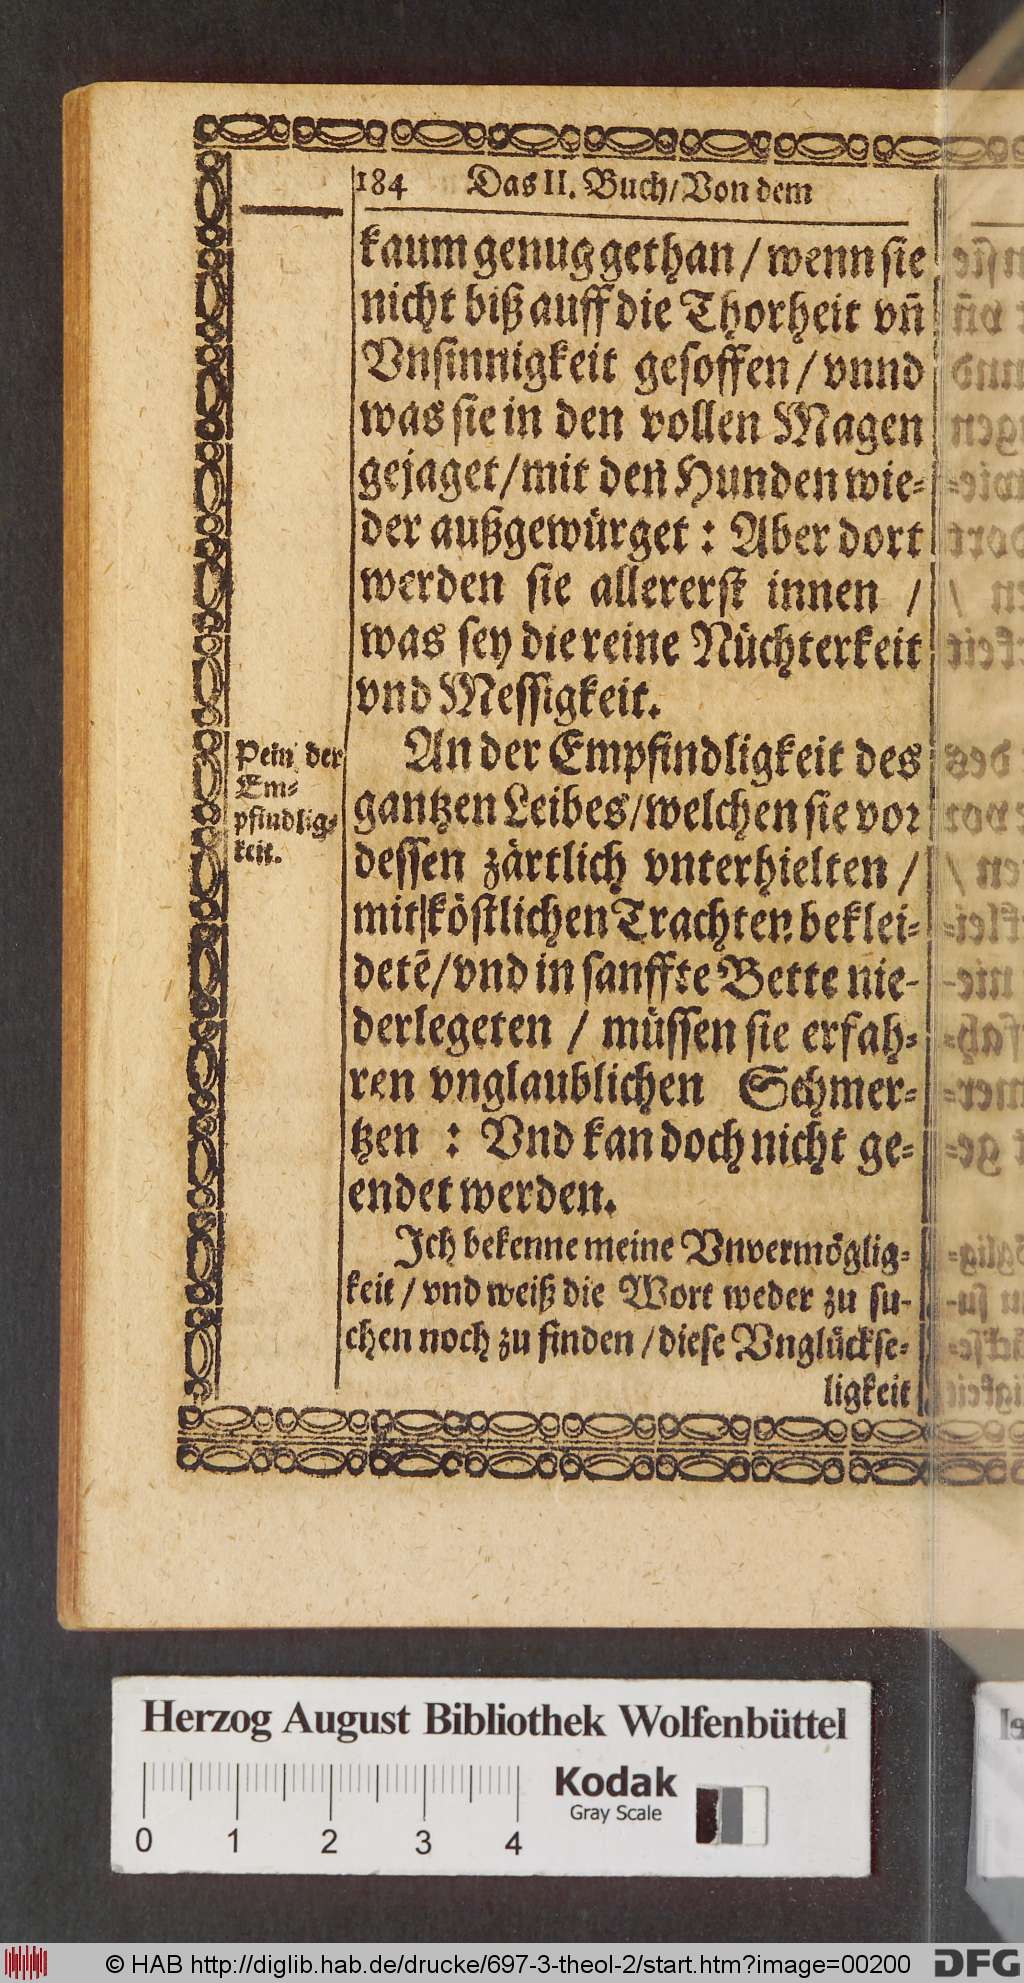 184 Das II. Buch/Von dem
kaum genug gethan / wenn sie
nicht biß auff die Thorheit vn̄
Vnsinnigkeit gesoffen / vnnd
was sie in den vollen Magen
gejaget/mit den Hunden wie-
der außgewürget : Aber dort
werden sie allererst innen /
was sey die reine Nüchterkeit
vnd Messigkeit.
Pein der
Em-
pfindlig-
keit.
An der Empfindligkeit des
gantzen Leibes/welchen sie vor
dessen zärtlich vnterhielten /
mit köstlichen Trachten beklei-
detē/vnd in sanffte Bette nie-
derlegeten / müssen sie erfah-
ren vnglaublichen Schmer-
tzen : Vnd kan doch nicht ge-
endet werden.
Ich bekenne meine Vnvermöglig-
keit / vnd weiß die Wort weder zu su-
chen noch zu finden /diese Vnglückse-
ligkeit
Herzog August Bibliothek Wolfenbüttel
0 1 2 3 4
Kodak
Gray Scale
© HAB http://diglib.hab.de/drucke/697-3-theol-2/start.htm?image=00200
DFG